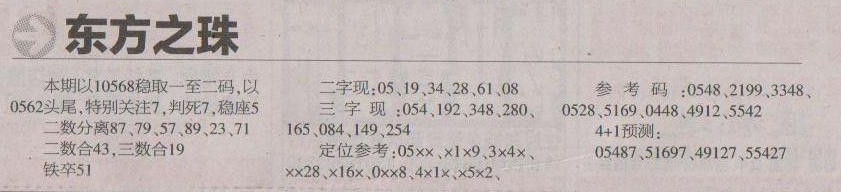 东方之珠
本期以10568稳取一至二码,以
0562头尾,特别关注7,判死7,稳座5
二数分离87、79、57、89、23、71
二数合43,三数合19
铁卒51
二字现:05、19、34、28、61、08
三字现:054、192、348、280、
165、084、149、254
定位参考:05××、×1×9、3×4×、
××28、×16×、0××8、4×1×、×5×2、
参考码:0548、2199、3348、
0528、5169、0448、4912、5542
4+1预测:
05487、51697、49127、55427